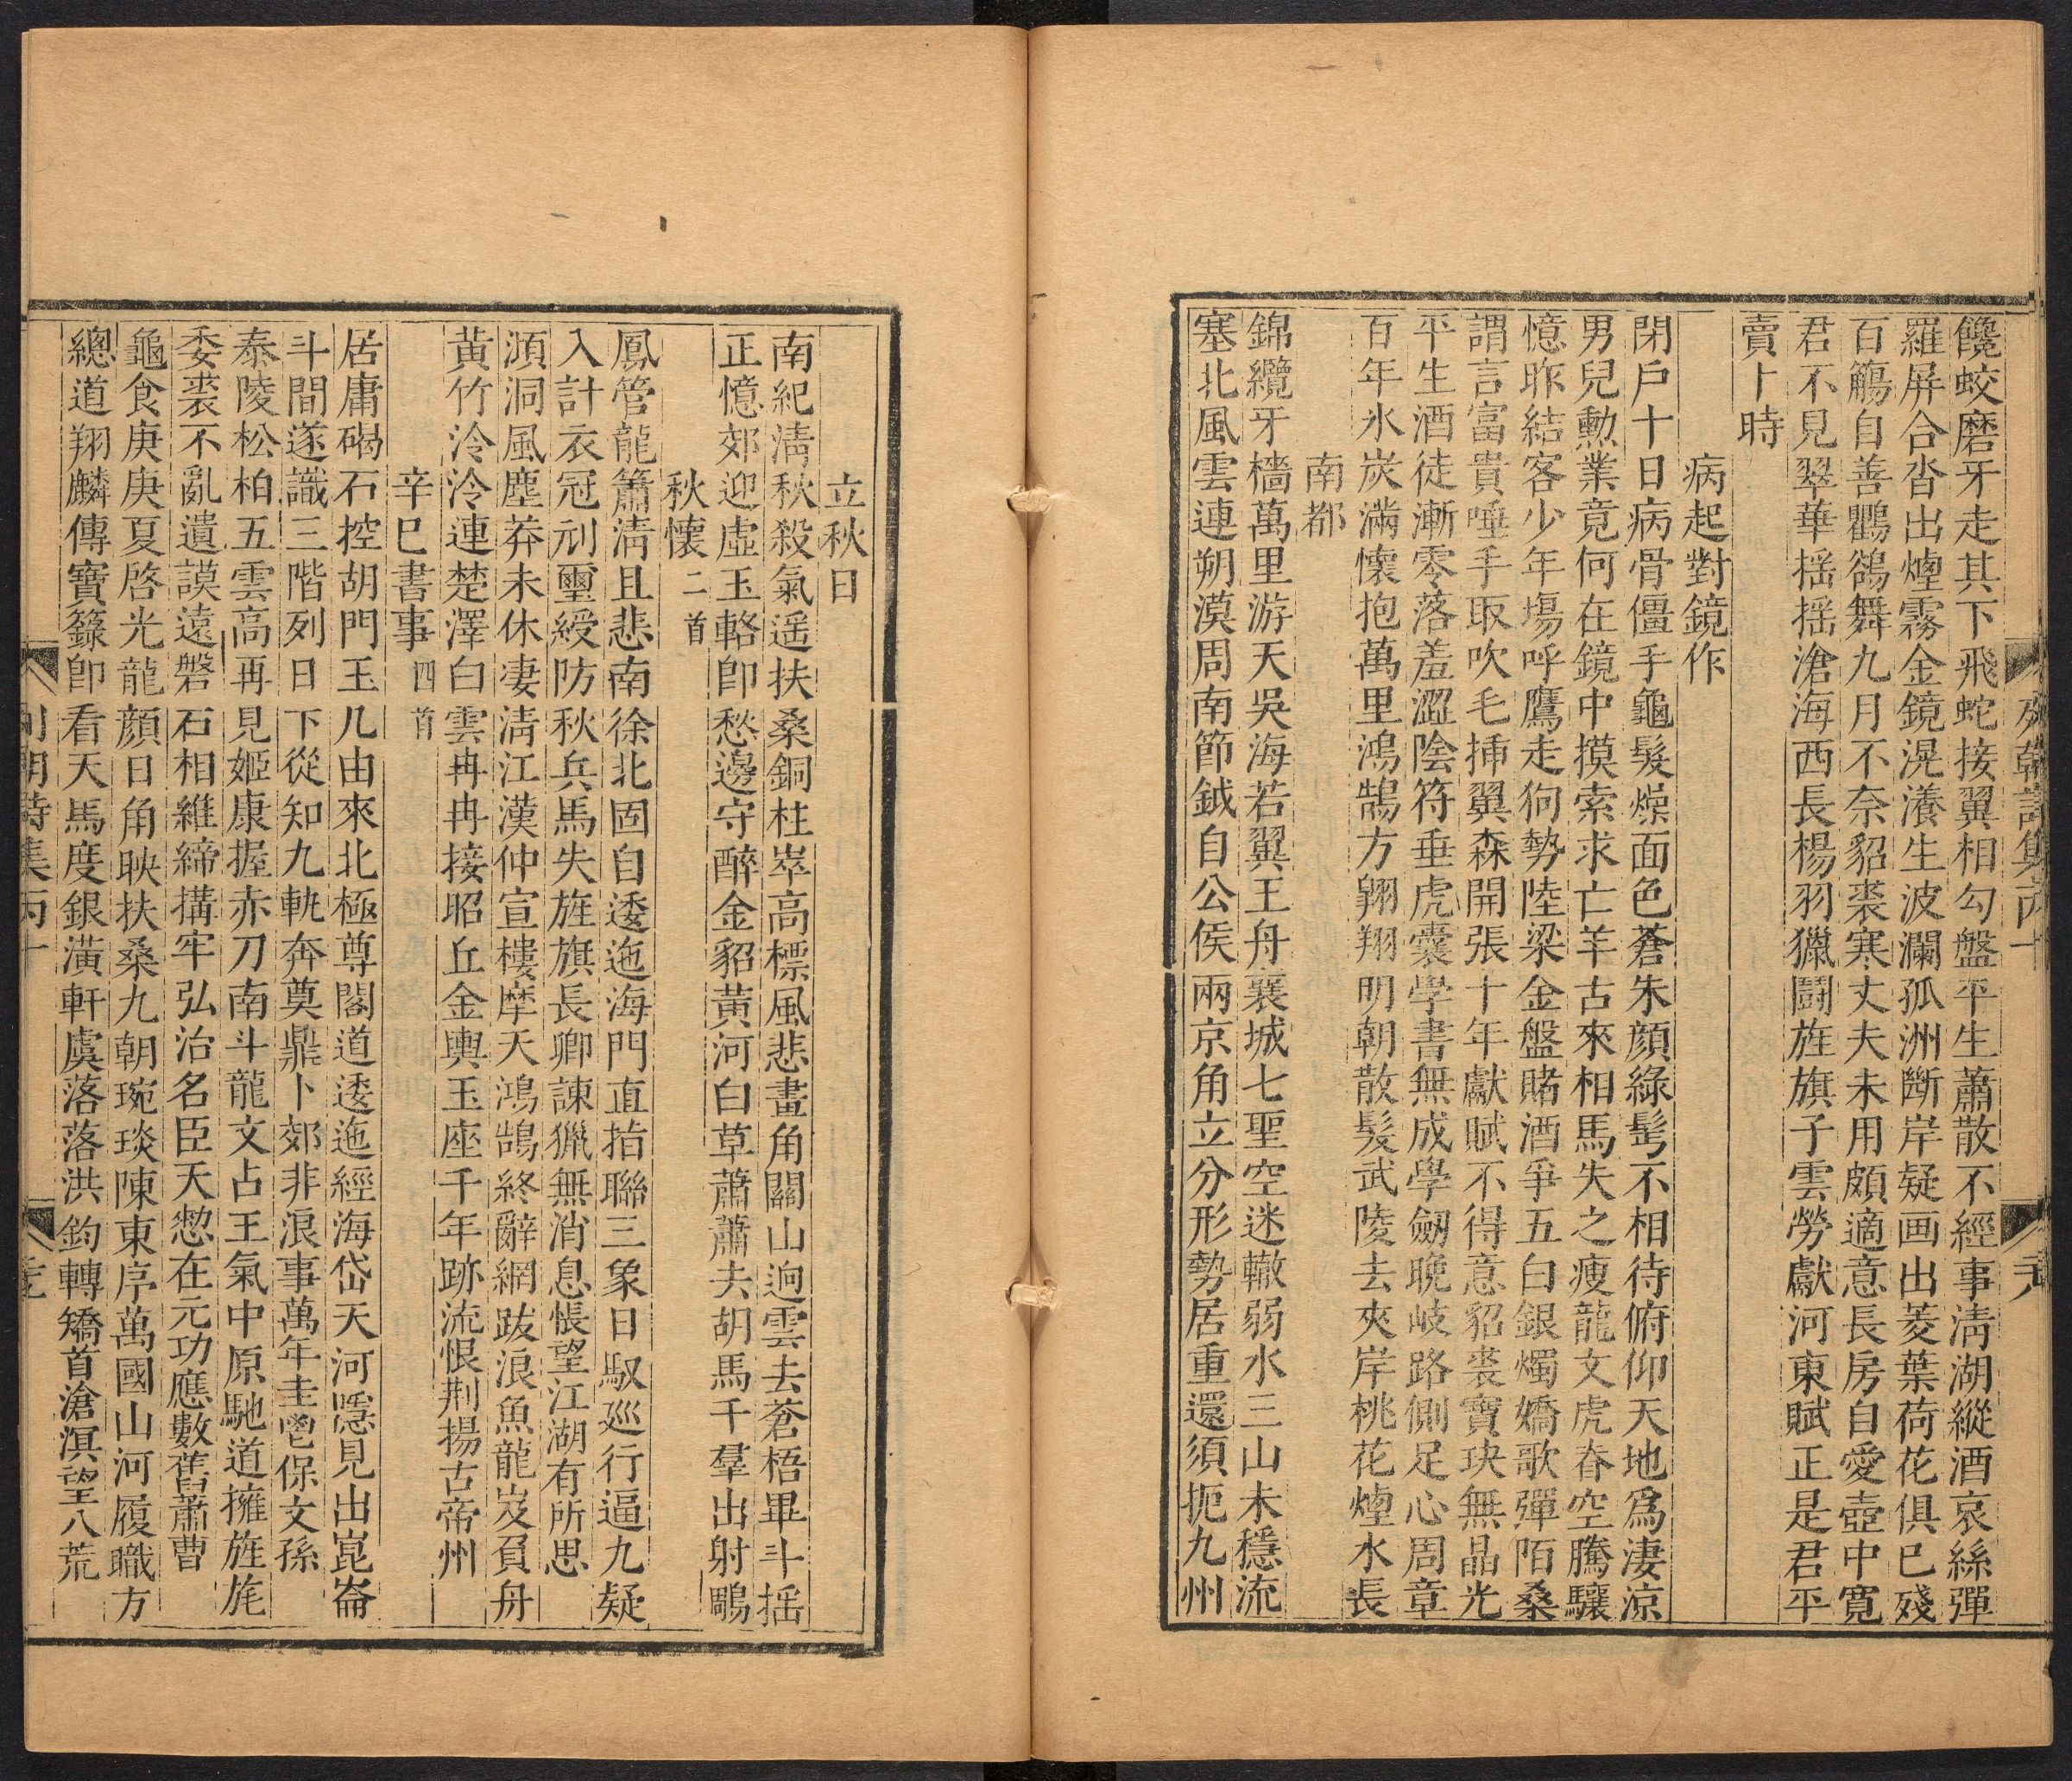 饞蛟磨牙走其下飛蛇接翼相勾盤平生蕭散不經事淸湖縱酒哀絲彈
羅屏合沓出煙霧金鏡滉瀁生波瀾孤洲斷岸疑画出菱葉荷花俱已殘
百觴自善鸜鵒舞九月不奈貂裘寒丈夫未用頗適意長房自愛壺中寬
君不見翠華揺揺滄海西長楊羽獵鬪旌旗子雲勞獻河東賦正是君平
賣卜時
病起對鏡作
閉戶十日病骨僵手龜髮燥面色蒼朱顔綠髩不相待俯仰天地爲淒涼
男兒勳業竟何在鏡中摸索求亡羊古來相馬失之瘦龍文虎脊空騰驤
憶昨結客少年塲呼鷹走狗勢陸梁金盤賭酒爭五白銀燭嬌歌彈陌桑
謂言富貴唾手取吹毛揷翼森開張十年獻賦不得意貂裘寶玦無晶光
平生酒徒漸零落羞澀陰符垂虎囊學書無成學劒晚岐路側足心周章
百年氷炭滿懷抱萬里鴻鵠方翱翔明朝散髮武陵去夾岸桃花煙水長
南都
錦纜牙檣萬里游天吳海若翼王舟襄城七聖空迷轍弱水三山未穩流
塞北風雲連朔漠周南節鉞自公侯兩京角立分形勢居重還須扼九州
列朝詩集丙十
立秋日
南紀淸秋殺氣遥扶桑銅柱崒高標風悲畫角關山逈雲去蒼梧畢斗揺
正憶郊迎虛玉輅卽愁邊守醉金貂黃河白草蕭蕭夫胡馬千羣出射鵰
秋懷二首
鳳管龍簫淸且悲南徐北固自逶迤海門直指聯三象日馭巡行逼九疑
入計衣冠刓璽綬防秋兵馬失旌旗長卿諫獵無消息悵望江湖有所思
澒洞風塵莽未休淒淸江漢仲宣樓摩天鴻鵠終辭網跋浪魚龍岌負舟
黃竹泠泠連楚澤白雲冉冉接昭丘金輿玉座千年跡流恨荆揚古帝州
辛巳書事四首
居庸碣石控胡門玉几由來北極尊閣道逶迤經海岱天河隱見出崑崙
斗間遂識三階列日下從知九軌奔奠鼎卜郊非浪事萬年圭鬯保文孫
泰陵松柏五雲高再見姬康握赤刀南斗龍文占王氣中原馳道擁旌旄
委裘不亂遺謨遠磐石相維締搆牢弘治名臣天憗在元功應數舊蕭曹
龜食庚庚夏啓光龍顔日角映扶桑九朝琬琰陳東序萬國山河履職方
總道翔麟傳寶籙卽看天馬度銀潢軒虞落落洪鈞轉矯首滄溟望八荒
列朝詩集丙十